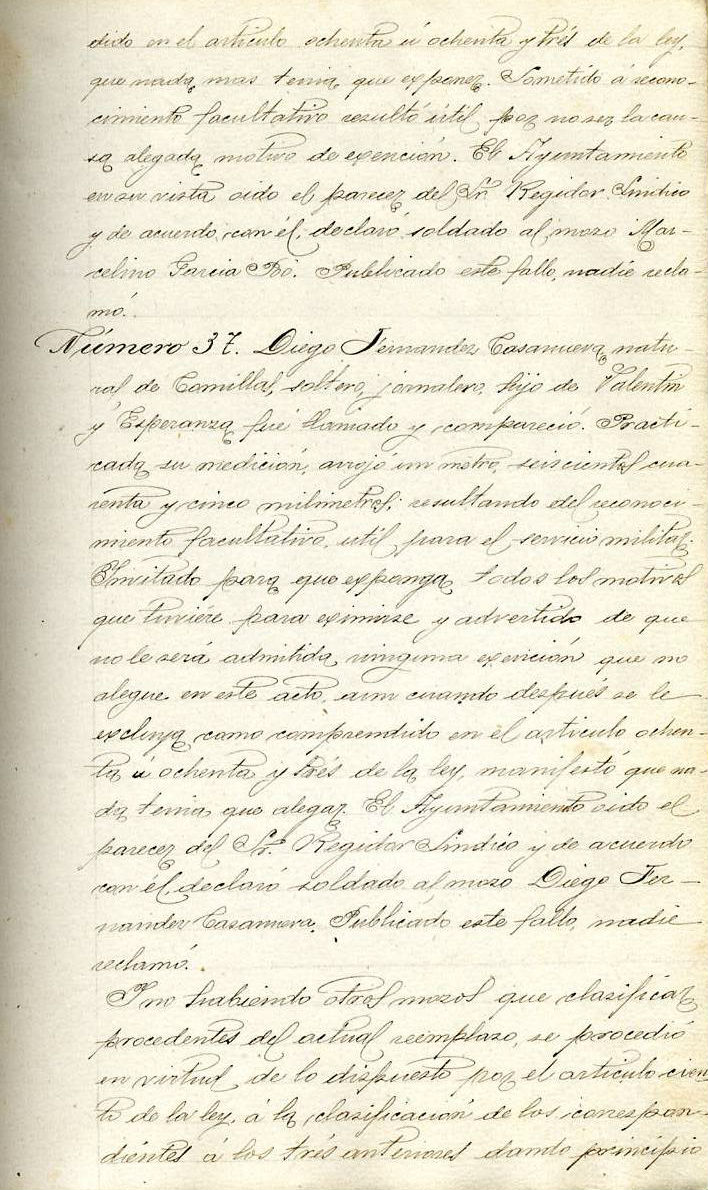 dido en el artículo ochenta ú ochenta y trés de la ley,
que nada mas tenia que exponer. Sometido á recono-
cimiento facultativo resultó útil por no ser la cau-
sa alegada motivo de exención. El Ayuntamiento
en su vista oido el parecer del Sr. Regidor Sindico
y de acuerdo con él, declaró soldado al mozo Mar-
celino Garcia Bó. Publicado este fallo, nadie recla-
mó.
Número 37. Diego Fernandez Casanueva, natu-
ral de Comillas, soltero, jornalero, hijo de Valentin
y Esperanza fué llamado y compareció. Practi-
cada su medición, arrojó un metro, seiscientos cua-
renta y cinco milimetros; resultando del reconoci-
miento facultativo, util para el servicio militar.
Invitado para que exponga todos los motivos
que tuviére para eximirse y advertido de que
no le será admitida ninguna exención que no
alegue en este acto, aun cuando después se le
excluya como comprendido en el artículo ochen-
ta ú ochenta y trés de la ley, manifestó que na-
da tenia que alegar. El Ayuntamiento oido el
parecer del Sr. Regidor Sindico y de acuerdo
con él, declaró soldado al mozo Diego Fer-
nandez Casanueva. Publicado este fallo, nadie
reclamó.
Y no habiendo otros mozos que clasificar
procedentes del actual reemplazo, se procedió
en virtud de lo dispuesto por el artículo cien-
to de la ley, á la clasificación de los correspon-
diéntes á los trés anteriores dando principio